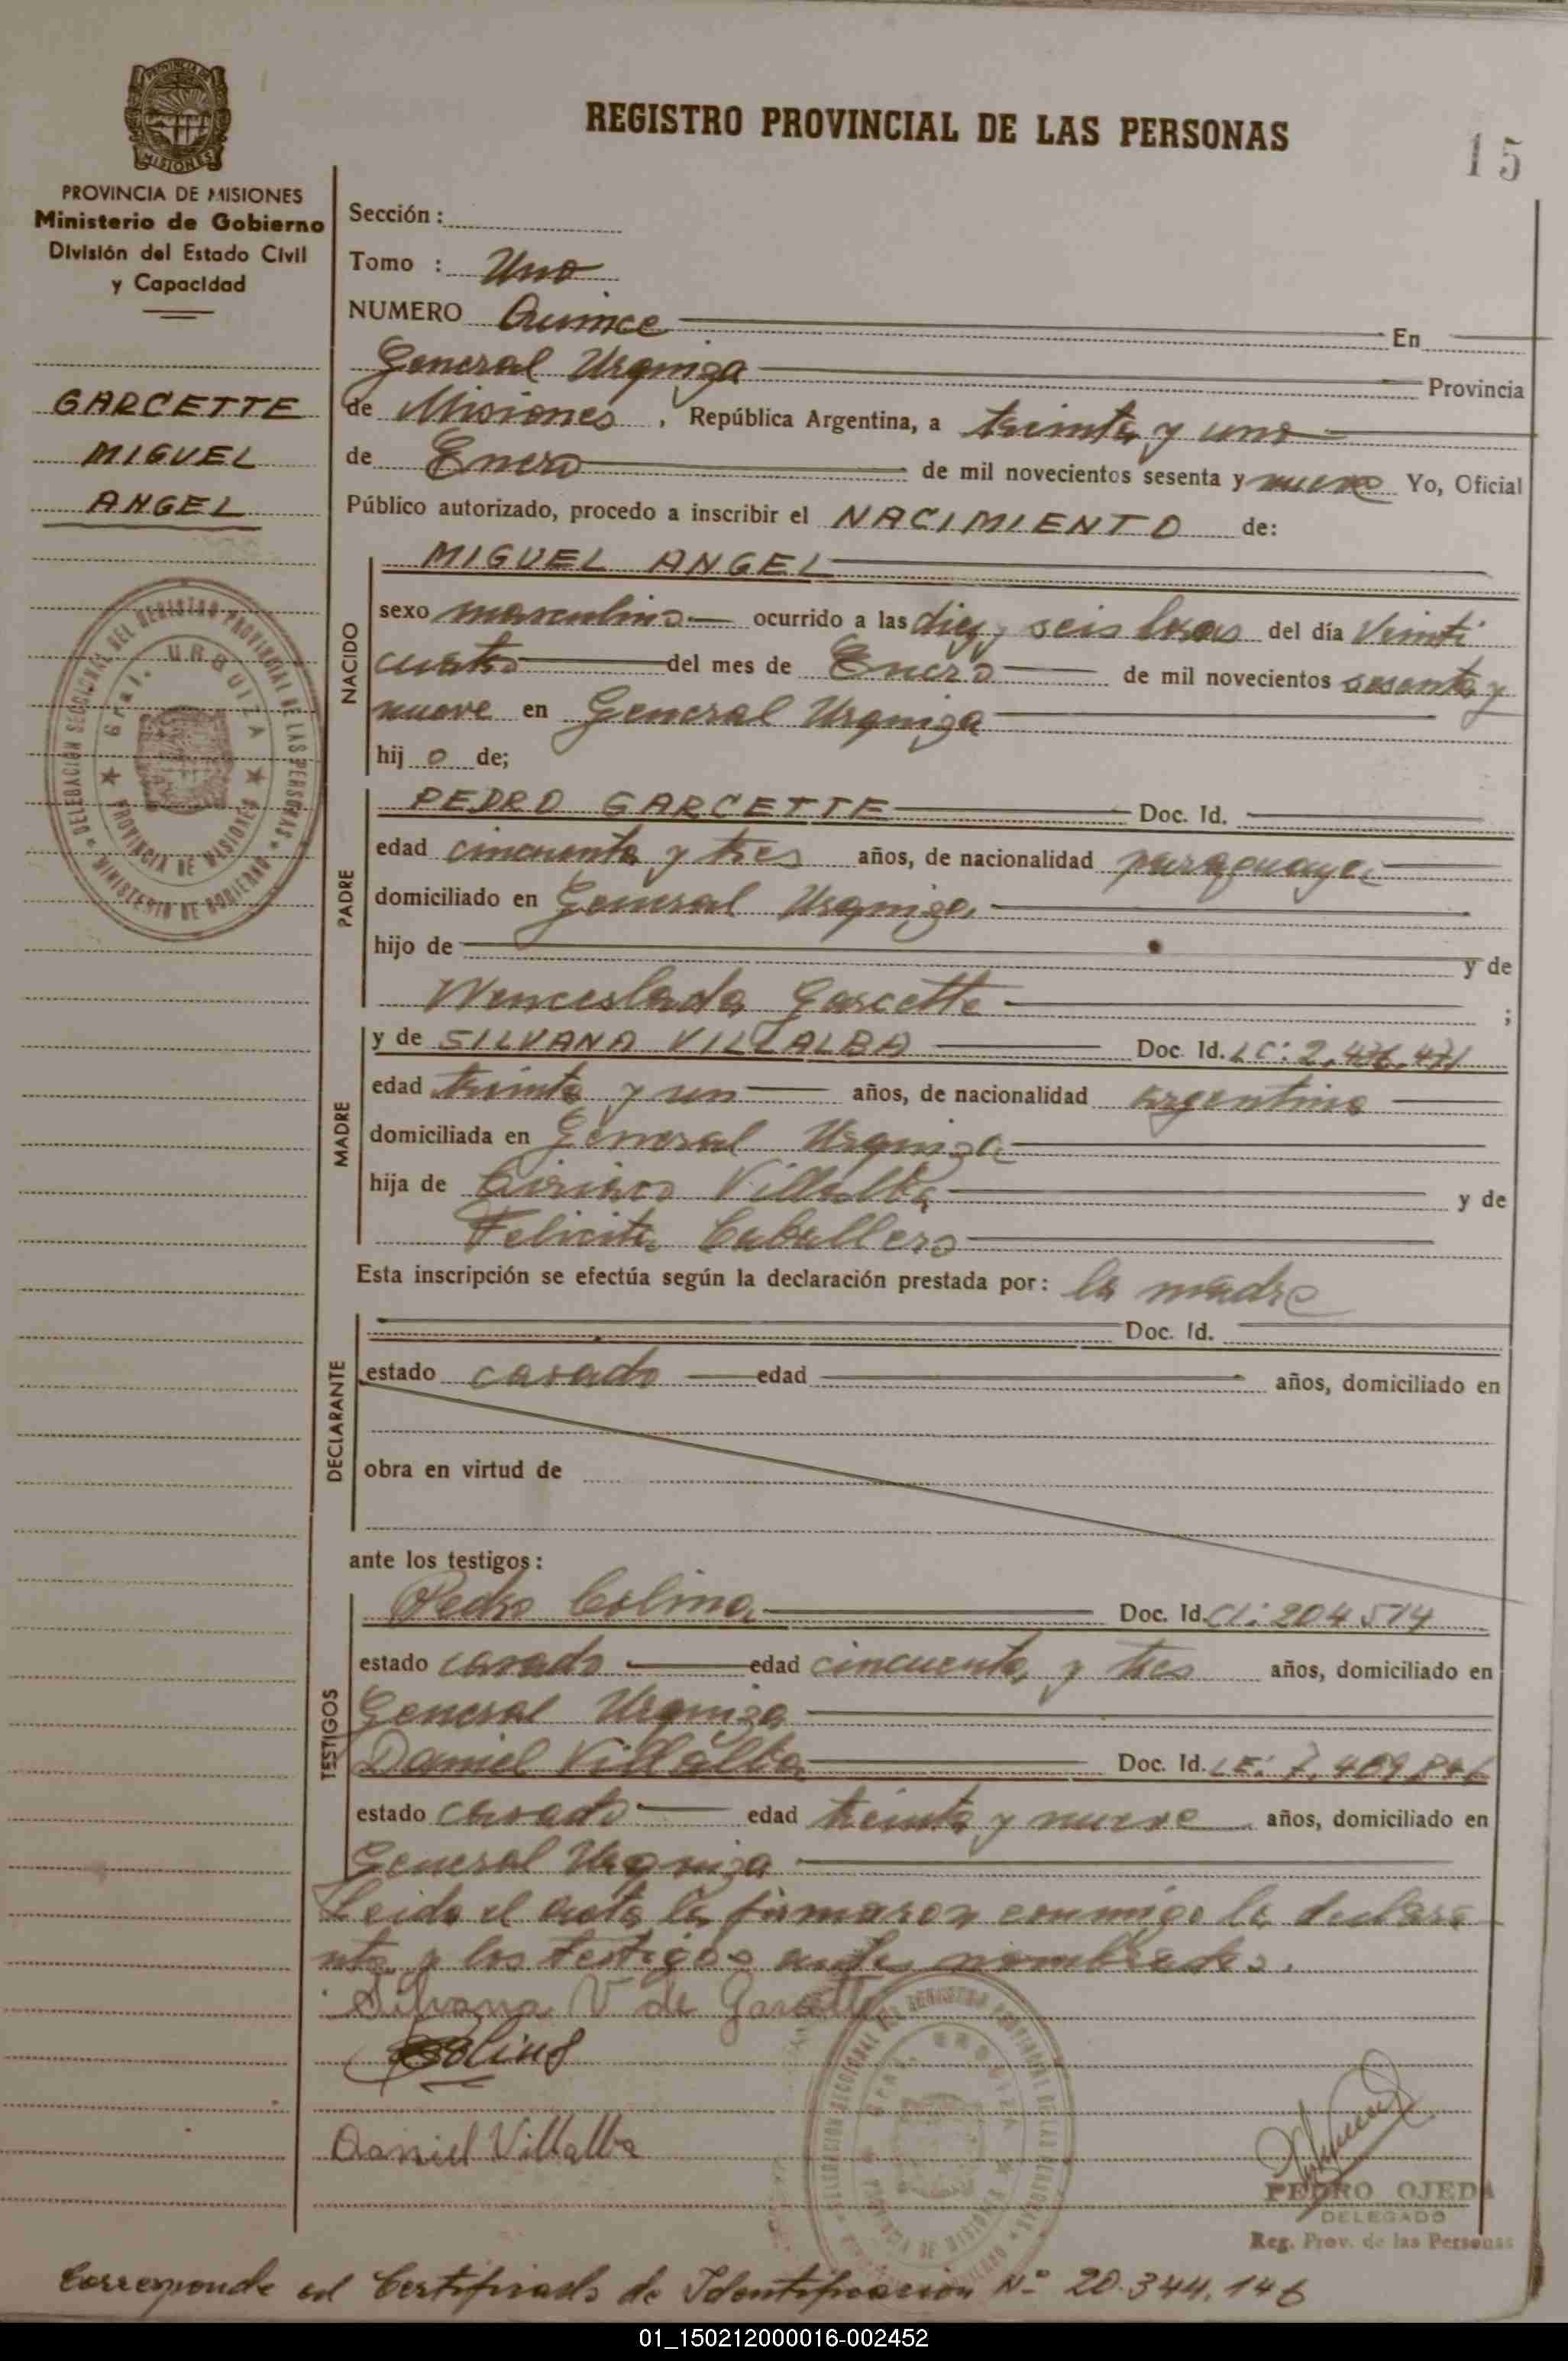 REGISTRO PROVINCIAL DE LAS PERSONAS
15
PROVINCIA DE MISIONES
MISIONES
PROVINCIA DE MISIONES
Ministerio de Gobierno
División del Estado Civil
y Capacidad
GARCETTE
MIGUEL
ANGEL
DELEGACION SECCIONAL DEL REGISTRO PROVINCIAL DE LAS PERSONAS
MINISTERIO DE GOBIERNO
Gral. URQUIZA
PROVINCIA DE MISIONES
Sección :
Tomo : Uno
NUMERO Quince En
General Urquiza Provincia
de Misiones, República Argentina, a treinta y uno
de Enero de mil novecientos sesenta y nueve Yo, Oficial
Público autorizado, procedo a inscribir el NACIMIENTO de:
NACIDO
MIGUEL ANGEL
sexo masculino ocurrido a las diez y seis horas del día Veinti
cuatro del mes de Enero de mil novecientos sesenta y
nueve en General Urquiza
hij o de;
PADRE
PEDRO GARCETTE Doc. Id.
edad cincuenta y tres años, de nacionalidad paraguaya
domiciliado en General Urquiza
hijo de y de
Wenceslada Garcette ;
MADRE
y de SILVANA VILLALBA Doc. Id. LC: 2,436,471
edad treinta y un años, de nacionalidad argentina
domiciliada en General Urquiza
hija de Ciriaco Villalba y de
Felicita Caballero
Esta inscripción se efectúa según la declaración prestada por: la madre
DECLARANTE
Doc. Id.
estado casado edad años, domiciliado en
obra en virtud de
ante los testigos:
TESTIGOS
Pedro Colina Doc. Id. CI: 204514
estado casado edad cincuenta y tres años, domiciliado en
General Urquiza
Daniel Villalba Doc. Id. LE: 7,409,846
estado casado edad treinta y nueve años, domiciliado en
General Urquiza
Leida el acta la firmaron conmigo la declara
nte y los testigos antes nombrados.
Silvana V de Garcette
Colina
Daniel Villalba
DELEGACION SECCIONAL DEL REGISTRO PROVINCIAL DE LAS PERSONAS
Gral. URQUIZA
PROVINCIA DE MISIONES
PEDRO OJEDA
DELEGADO
Reg. Prov. de las Personas
Corresponde al Certificado de Identificación Nº 20.344.146
01_150212000016-002452